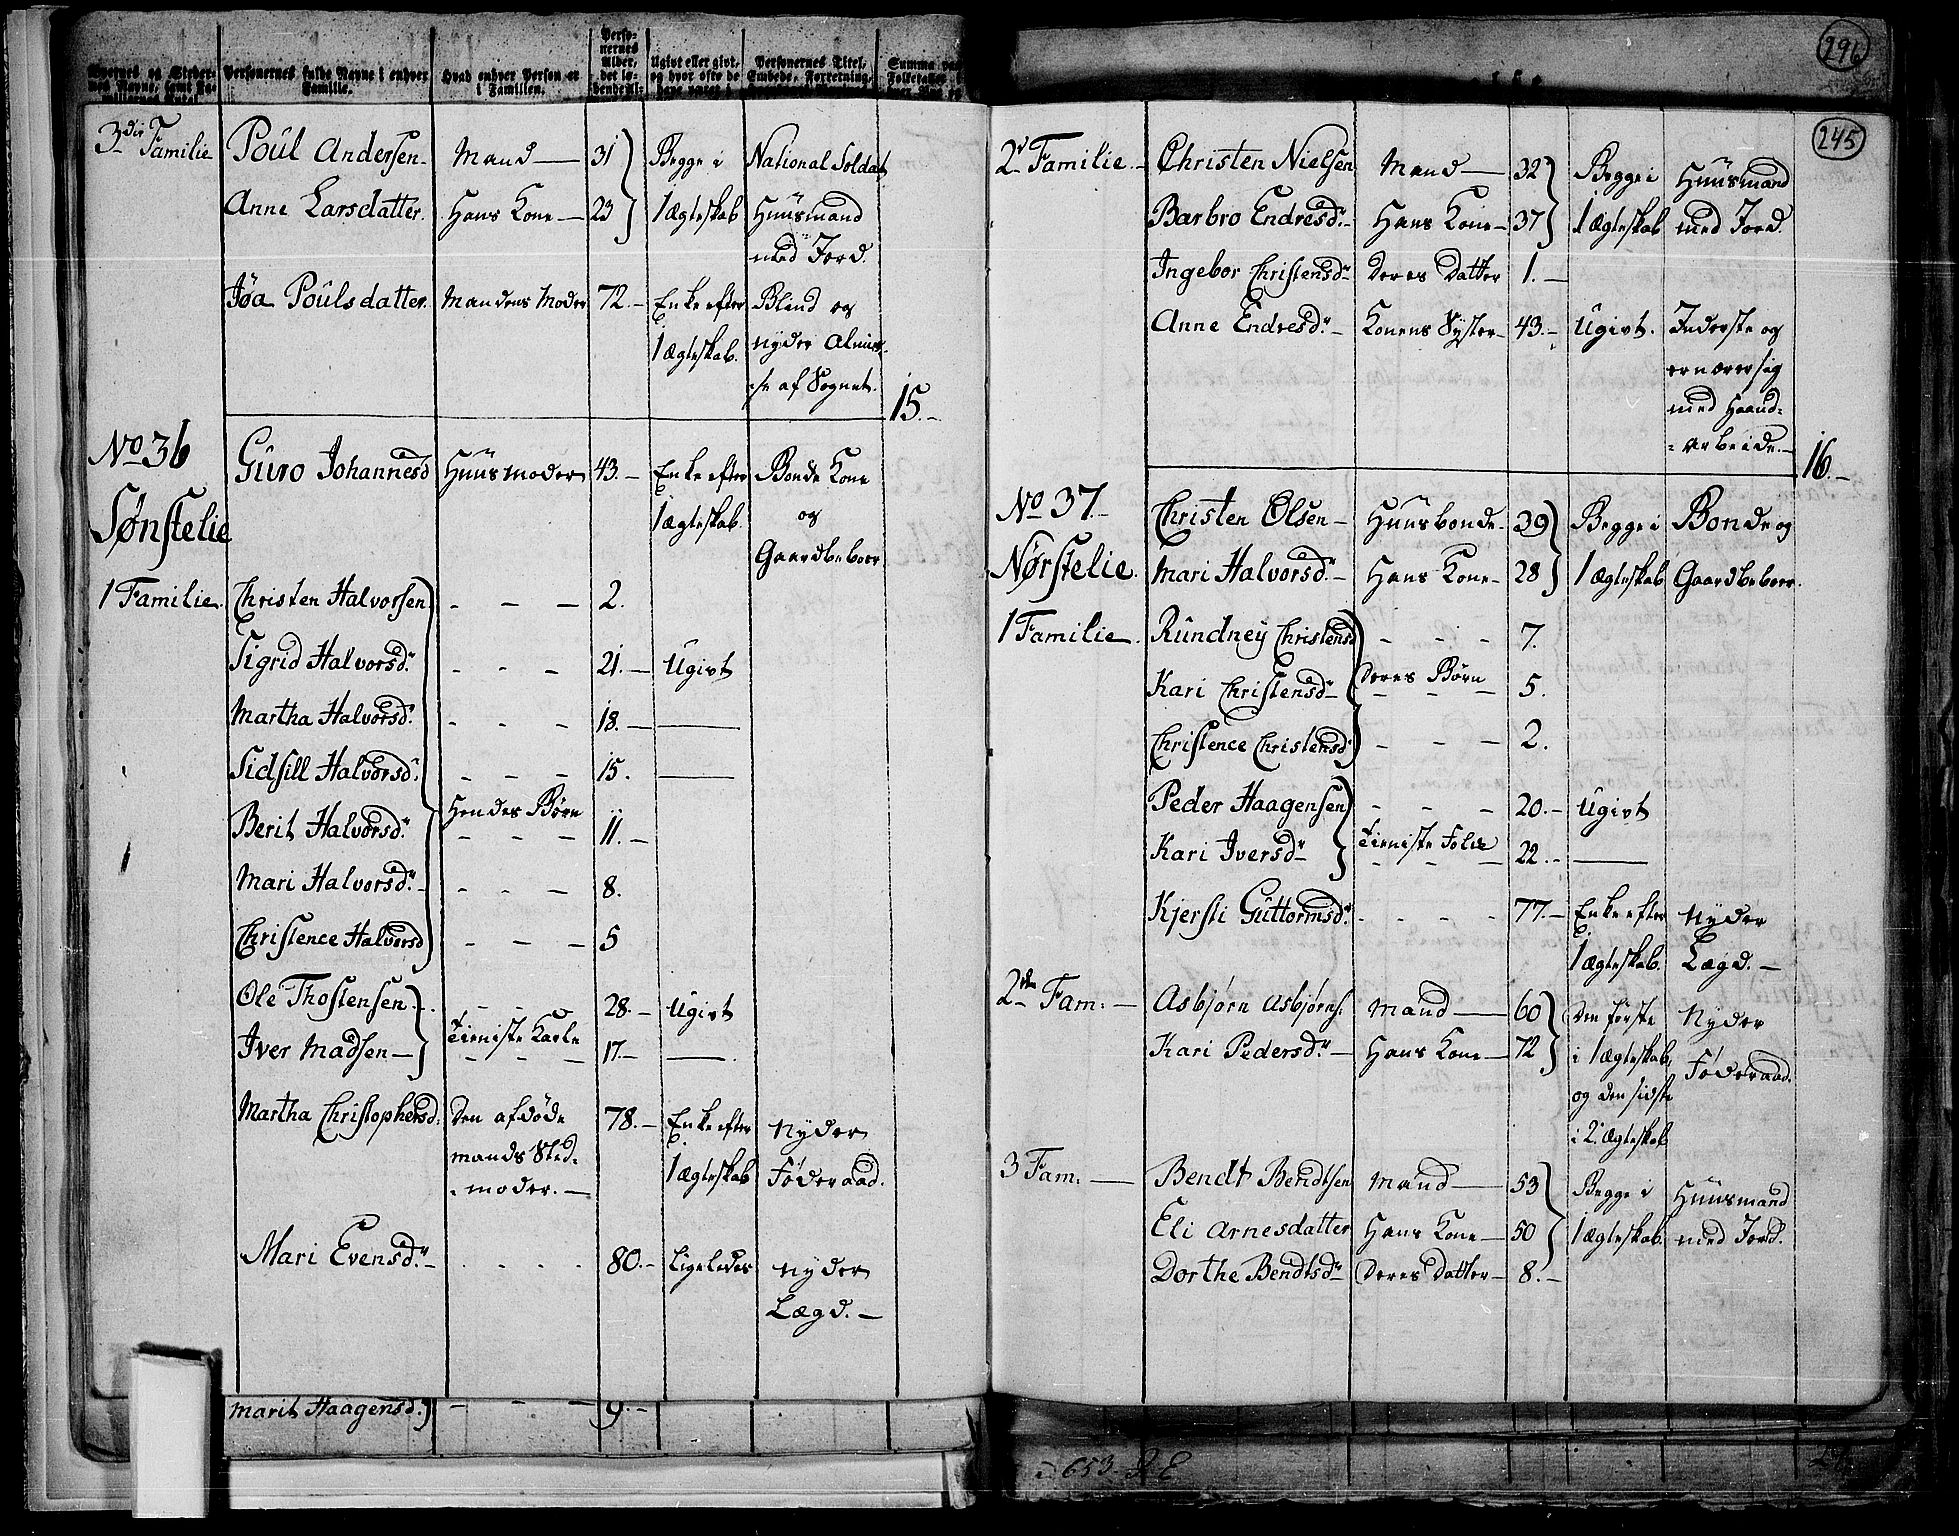 Personernes fulde Navne i enhver Familie.
Hvad enhver Person er i Familien.
Personernes Alder, det løbende
Ugivt eller givt, og hvor ofte de have været i
Personernes Titel, Embede, Forretning,
Summa
296
245
3die Familie Poul Andersen Mand 31 Begge i National Soldat
Anne Larsdatter. Hans Kone 23 1 ægteskab Huusmand
med Jord.
Jøa Poulsdatter. Mandens Moder 72. Enke efter Blind og
1 ægteskab. nyder Almis-
-se af Sognet. 15.
No 36 Guro Johannesd Huusmoder 43. Enke efter Bonde Kone
Sønstelie 1 ægteskab. og
Gaardbeboer
1 Familie. Christen Halvorsen - - - 2.
Sigrid Halvorsd. - - - 21. Ugivt
Martha Halvorsd. - - - 18. —
Sidsill Halvorsd. - - - 15. —
Berit Halvorsd. Hendes Børn 11.
Mari Halvorsd. - - - 8.
Christence Halvorsd - - - 5
Ole Thostensen - - - 28. Ugivt
Iver Madsen Tieniste Karle 17. —
Martha Christophersd. Den afdøde 78. Enke efter Nyder
Mands Sted- 1 ægteskab Føderaad.
-moder.
Mari Evensd. - - - - 80. Ligeledes Nyder
Lægd.
Marit Haagensd. - - - 9.
2 Familie. Christen Nielsen Mand 32 Begge i Huusmand
Barbro Endresd. Hans Kone 37 1 ægteskab med Jord.
Ingebor Christensd. Deres Datter 1.
Anne Endresd. Konens Syster 43. Ugivt. Inderste og
ernærer sig
med Haand-
-arbeide. 16.
No 37. Christen Olsen Huusbonde 39 Begge i Bonde og
Nørstelie. Mari Halvorsd. Hans Kone 28 1 ægteskab Gaardbeboer.
1 Familie. Rundney Christensd - - - 7.
Kari Christensd Deres Børn 5.
Christence Christensd. - - - 2.
Peder Haagensen - - - 20. Ugivt
Kari Iversd Tieniste Folk 22. —
Kjersti Guttormsd. - - - - 77. Enke efter Nyder
1 ægteskab. Lægd.
2den Fam: Asbjørn Asbjørns: Mand 60 Den første Nyder
Kari Pedersd. Hans Kone 72 i 1 ægteskab, Føderaad.
og den sidste
i 2 ægteskab
3 Fam. Bendt Bendtsen Mand 53 Begge i Huusmand
Eli Arnesdatter Hans Kone 50 1 ægteskab. med Jord.
Dorthe Bendtsd Deres Datter 8.
653.